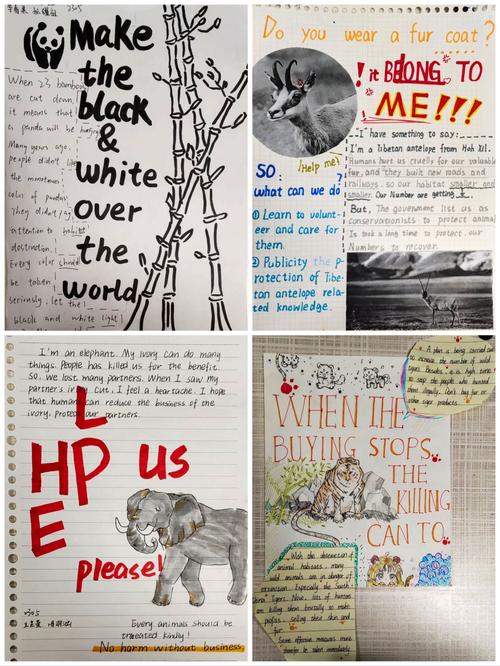 2305
Make
the
black
&
white
over
the
world
When 23 bamboos
are cut down,
it means that
a panda will be hungry
Many years ago,
people didn't like
the monotonous
color of pandas
They didn't
attention to habitat
destruction.
Every color should
be taken
seriously. let the
black and white light!
Do you wear a fur coat?
! it BELONG TO
ME!!!
(Help me!)
I have something to say:
I'm a Tibetan antelope from Hoh Xil.
Humans hurt us cruelly for our valuable
fur, and they built new roads and
railways, so our habitat smaller and
smaller. Our Number are getting ↓.
But, The government list us as
conservationists to protect animal
It took a long time to protect, our
Numbers to recover.
SO:
what can we do?
① Learn to volunt-
eer and care for
them.
② Publicity the p-
rotection of Tibe-
tan antelope rela-
ted knowledge.
I'm an elephant. My ivory can do many
things. People has killed us for the benefit.
So, we lost many partners. When I saw my
partner's ivory cut, I feel a heartache. I hope
that humans can reduce the business of the
ivory, protect our partners.
HELP us
please!
2305
Every animals should be
treated kindly!
No harm without business.
A plan is being carried out
to increase the number of wild
tigers. Besides, it is high time
to stop the people who hunted
them illegally. Don't buy fur or
other tiger products.
WHEN THE
BUYING STOPS,
THE
KILLING
CAN TO
With the destruction of
animal habitats, many
wild animals are in danger of
extinction. Especially the South
China tigers. Now, lots of humans
are killing them brutally to make
profits, selling their skin and
fur.
Some effective measures must
therefor be taken immediately.